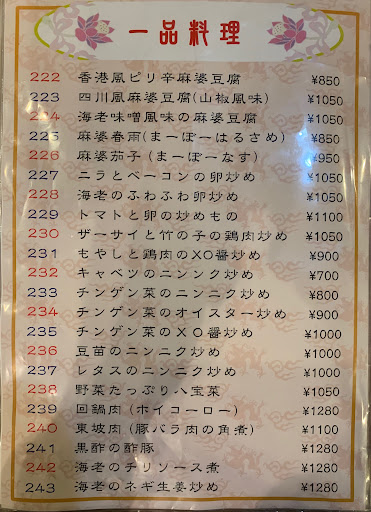 一品料理
222 香港風ピリ辛麻婆豆腐 ¥850
223 四川風麻婆豆腐(山椒風味) ¥1050
224 海老味噌風味の麻婆豆腐 ¥1050
225 麻婆春雨(まーぼーはるさめ) ¥850
226 麻婆茄子(まーぼーなす) ¥950
227 ニラとベーコンの卵炒め ¥1050
228 海老のふわふわ卵炒め ¥1050
229 トマトと卵の炒めもの ¥1100
230 ザーサイと竹の子の鶏肉炒め ¥1050
231 もやしと鶏肉のXO醤炒め ¥900
232 キャベツのニンンク炒め ¥700
233 チンゲン菜のニンニク炒め ¥800
234 チンゲン菜のオイスター炒め ¥900
235 チンゲン菜のXO醤炒め ¥1000
236 豆苗のニンニク炒め ¥1000
237 レタスのニンニク炒め ¥1000
238 野菜たっぷり八宝菜 ¥1050
239 回鍋肉(ホイコーロー) ¥1280
240 東坡肉(豚バラ肉の角煮) ¥1100
241 黒酢の酢豚 ¥1280
242 海老のチリソース煮 ¥1280
243 海老のネギ生姜炒め ¥1280